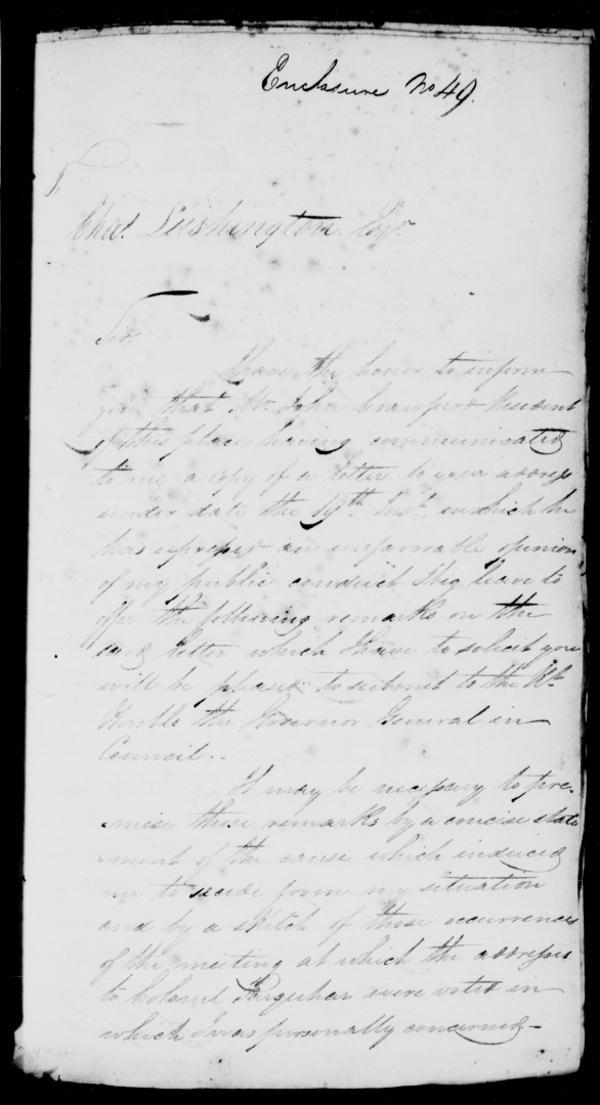 Enclosure No 49.
To
Chas. Lushington Esqr.
Sir,
I have the honor to inform
you that Mr. John Crawfurd Resident
of this place having communicated
to me a copy of a letter to your address
under date the 19th Inst. in which he
has expressed an unfavorable opinion
of my public conduct I beg leave to
offer the following remarks on the
said letter which I have to solicit you
will be pleased to submit to the Rt.
Honble the Governor General in
Council..
It may be necessary to pre-
-mise these remarks by a concise state
-ment of the cause which induced
me to secede from my situation
and by a sketch of those occurrences
of the meeting at which the addresses
to Colonel Farquhar were voted in
which I was personally concerned -